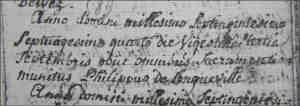 Anno domini millesimo septingentesimo
septuagesimo quarto die vigesima tertia
septembris obiit omnibus sacramentis
munitus Philippus de longueville
Anno domini millesimo septingentesi